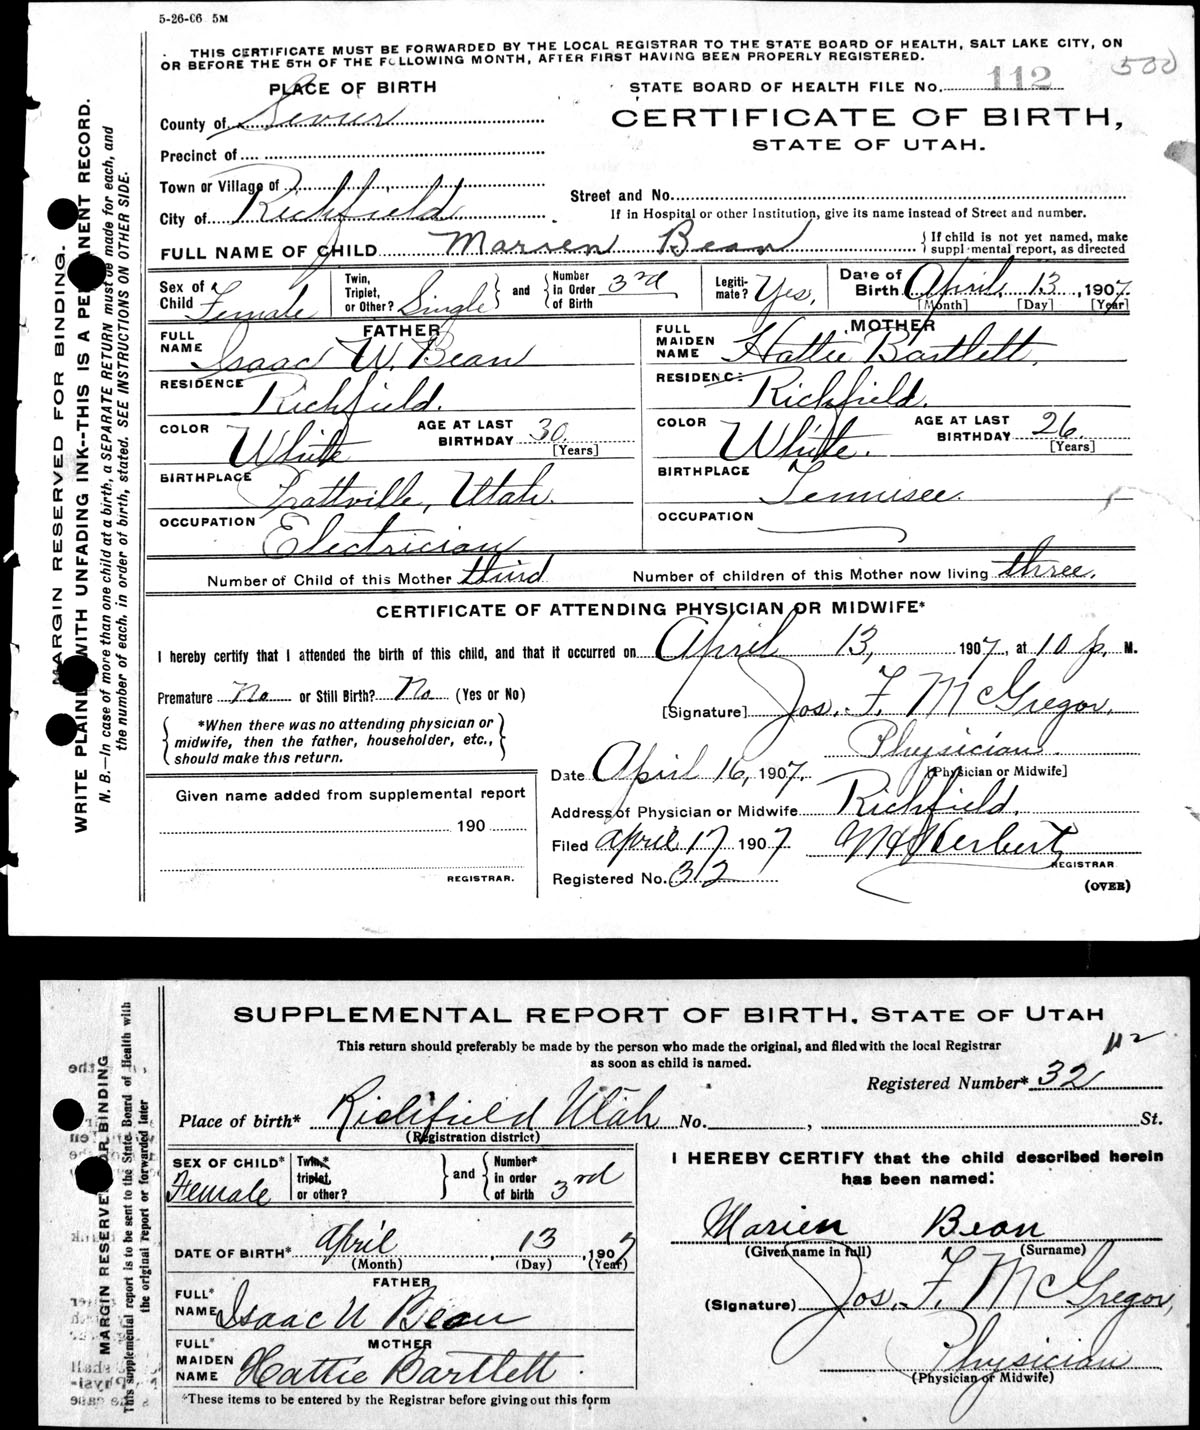 5-26-06 5M
THIS CERTIFICATE MUST BE FORWARDED BY THE LOCAL REGISTRAR TO THE STATE BOARD OF HEALTH, SALT LAKE CITY, ON
OR BEFORE THE 5TH OF THE FOLLOWING MONTH, AFTER FIRST HAVING BEEN PROPERLY REGISTERED.
500
PLACE OF BIRTH
STATE BOARD OF HEALTH FILE No. 112
County of Sevier
CERTIFICATE OF BIRTH,
STATE OF UTAH.
Precinct of
Town or Village of
Street and No.
City of Richfield
If in Hospital or other Institution, give its name instead of Street and number.
FULL NAME OF CHILD Marien Bean { If child is not yet named, make supplemental report, as directed
Sex of Child Female Twin, Triplet, or Other? Single } and { Number in Order of Birth 3rd Legitimate? Yes, Date of Birth April, 13, 1907
[Month] [Day] [Year]
FATHER
FULL NAME Isaac W. Bean
RESIDENCE Richfield.
COLOR White AGE AT LAST BIRTHDAY 30 [Years]
BIRTHPLACE Prattville, Utah.
OCCUPATION Electrician
MOTHER
FULL MAIDEN NAME Hattie Bartlett,
RESIDENCE Richfield.
COLOR White. AGE AT LAST BIRTHDAY 26 [Years]
BIRTHPLACE Tennisee.
OCCUPATION
Number of Child of this Mother third Number of children of this Mother now living three.
CERTIFICATE OF ATTENDING PHYSICIAN OR MIDWIFE*
I hereby certify that I attended the birth of this child, and that it occurred on April 13, 1907, at 10 p. M.
Premature No or Still Birth? No (Yes or No)
[Signature] Jos. F. McGregor,
{ *When there was no attending physician or
midwife, then the father, householder, etc.,
should make this return. }
Physician.
[Physician or Midwife]
Date April 16, 1907.
Given name added from supplemental report
190
REGISTRAR.
Address of Physician or Midwife Richfield.
Filed April 17 1907 Herbert
REGISTRAR
Registered No. 32
(OVER)
MARGIN RESERVED FOR BINDING.
WRITE PLAINLY WITH UNFADING INK--THIS IS A PERMANENT RECORD.
N. B.—In case of more than one child at a birth, a SEPARATE RETURN must be made for each, and
the number of each, in order of birth, stated. SEE INSTRUCTIONS ON OTHER SIDE.
SUPPLEMENTAL REPORT OF BIRTH, STATE OF UTAH
This return should preferably be made by the person who made the original, and filed with the local Registrar
as soon as child is named.
112
Registered Number* 32
Place of birth* Richfield Utah No. , St.
(Registration district)
SEX OF CHILD* Female Twin,* triplet, or other? } and { Number* in order of birth 3rd
DATE OF BIRTH* April, 13, 1907
(Month) (Day) (Year)
FATHER
FULL* NAME Isaac W Bean
MOTHER
FULL* MAIDEN NAME Hattie Bartlett.
*These items to be entered by the Registrar before giving out this form
I HEREBY CERTIFY that the child described herein
has been named:
Marien Bean
(Given name in full) (Surname)
(Signature) Jos. F. McGregor,
Physician
(Physician or Midwife)
MARGIN RESERVED FOR BINDING
This supplemental report is to be sent to the State Board of Health with
the original report or forwarded later